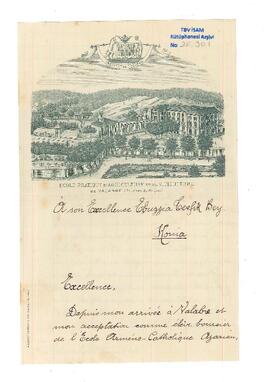 TDV İSAM
Kütüphanesi Arşivi
No:
ECOLE PRATIQUE D'AGRICULTURE
DE VALABRE
À son Excellence Ebuzzia Tevfik Bey
Konia
Excellence,
Depuis mon arrivée à Valabre et
mon acceptation comme élève boursier
de l'Ecole Arméno-Catholique Azarian,